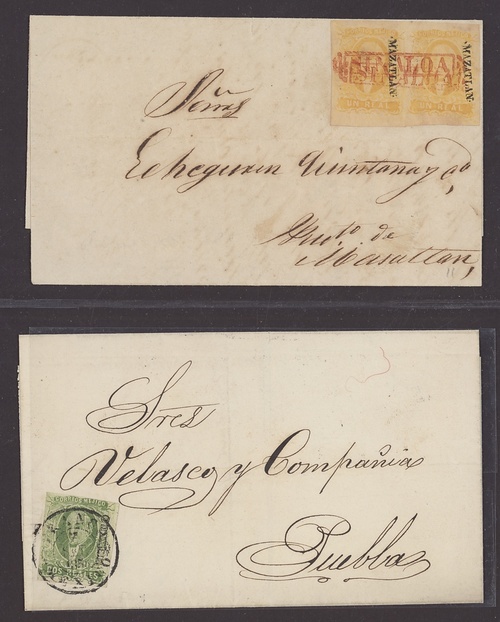 MAZATLAN
MAZATLAN
SINALOA
UN RL
UN RL
Señres
Echeguren Quintana y Co
Puerto de
Mazatlan,
Sres
Velasco y Compañia
Puebla
CORREOS MEJICO
DOS REALES